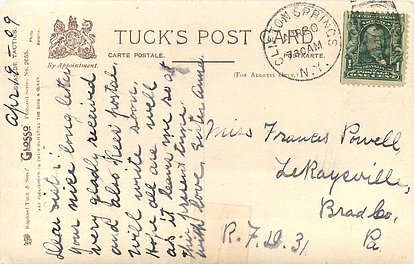 TUCK'S POST CARD
CARTE POSTALE.
POSTKARTE.
By Appointment.
(For Address Only.)
CLIFTON SPRINGS
APR 20
730AM
N.Y.
April 18 - 09
Dear sister:
Your nice long letter
very gladly received
and also Rees postal
will write soon.
Hope all are well
as it leaves me so at
this present time.
with love, Sister Anna
Miss Frances Powell
LeRaysville,
Brad Co.
Pa.
R.F.D. 31.
Raphael Tuck & Sons'
GROSSO
Postcard Series No. 2655.
ART PUBLISHERS TO THEIR MAJESTIES THE KING & QUEEN.